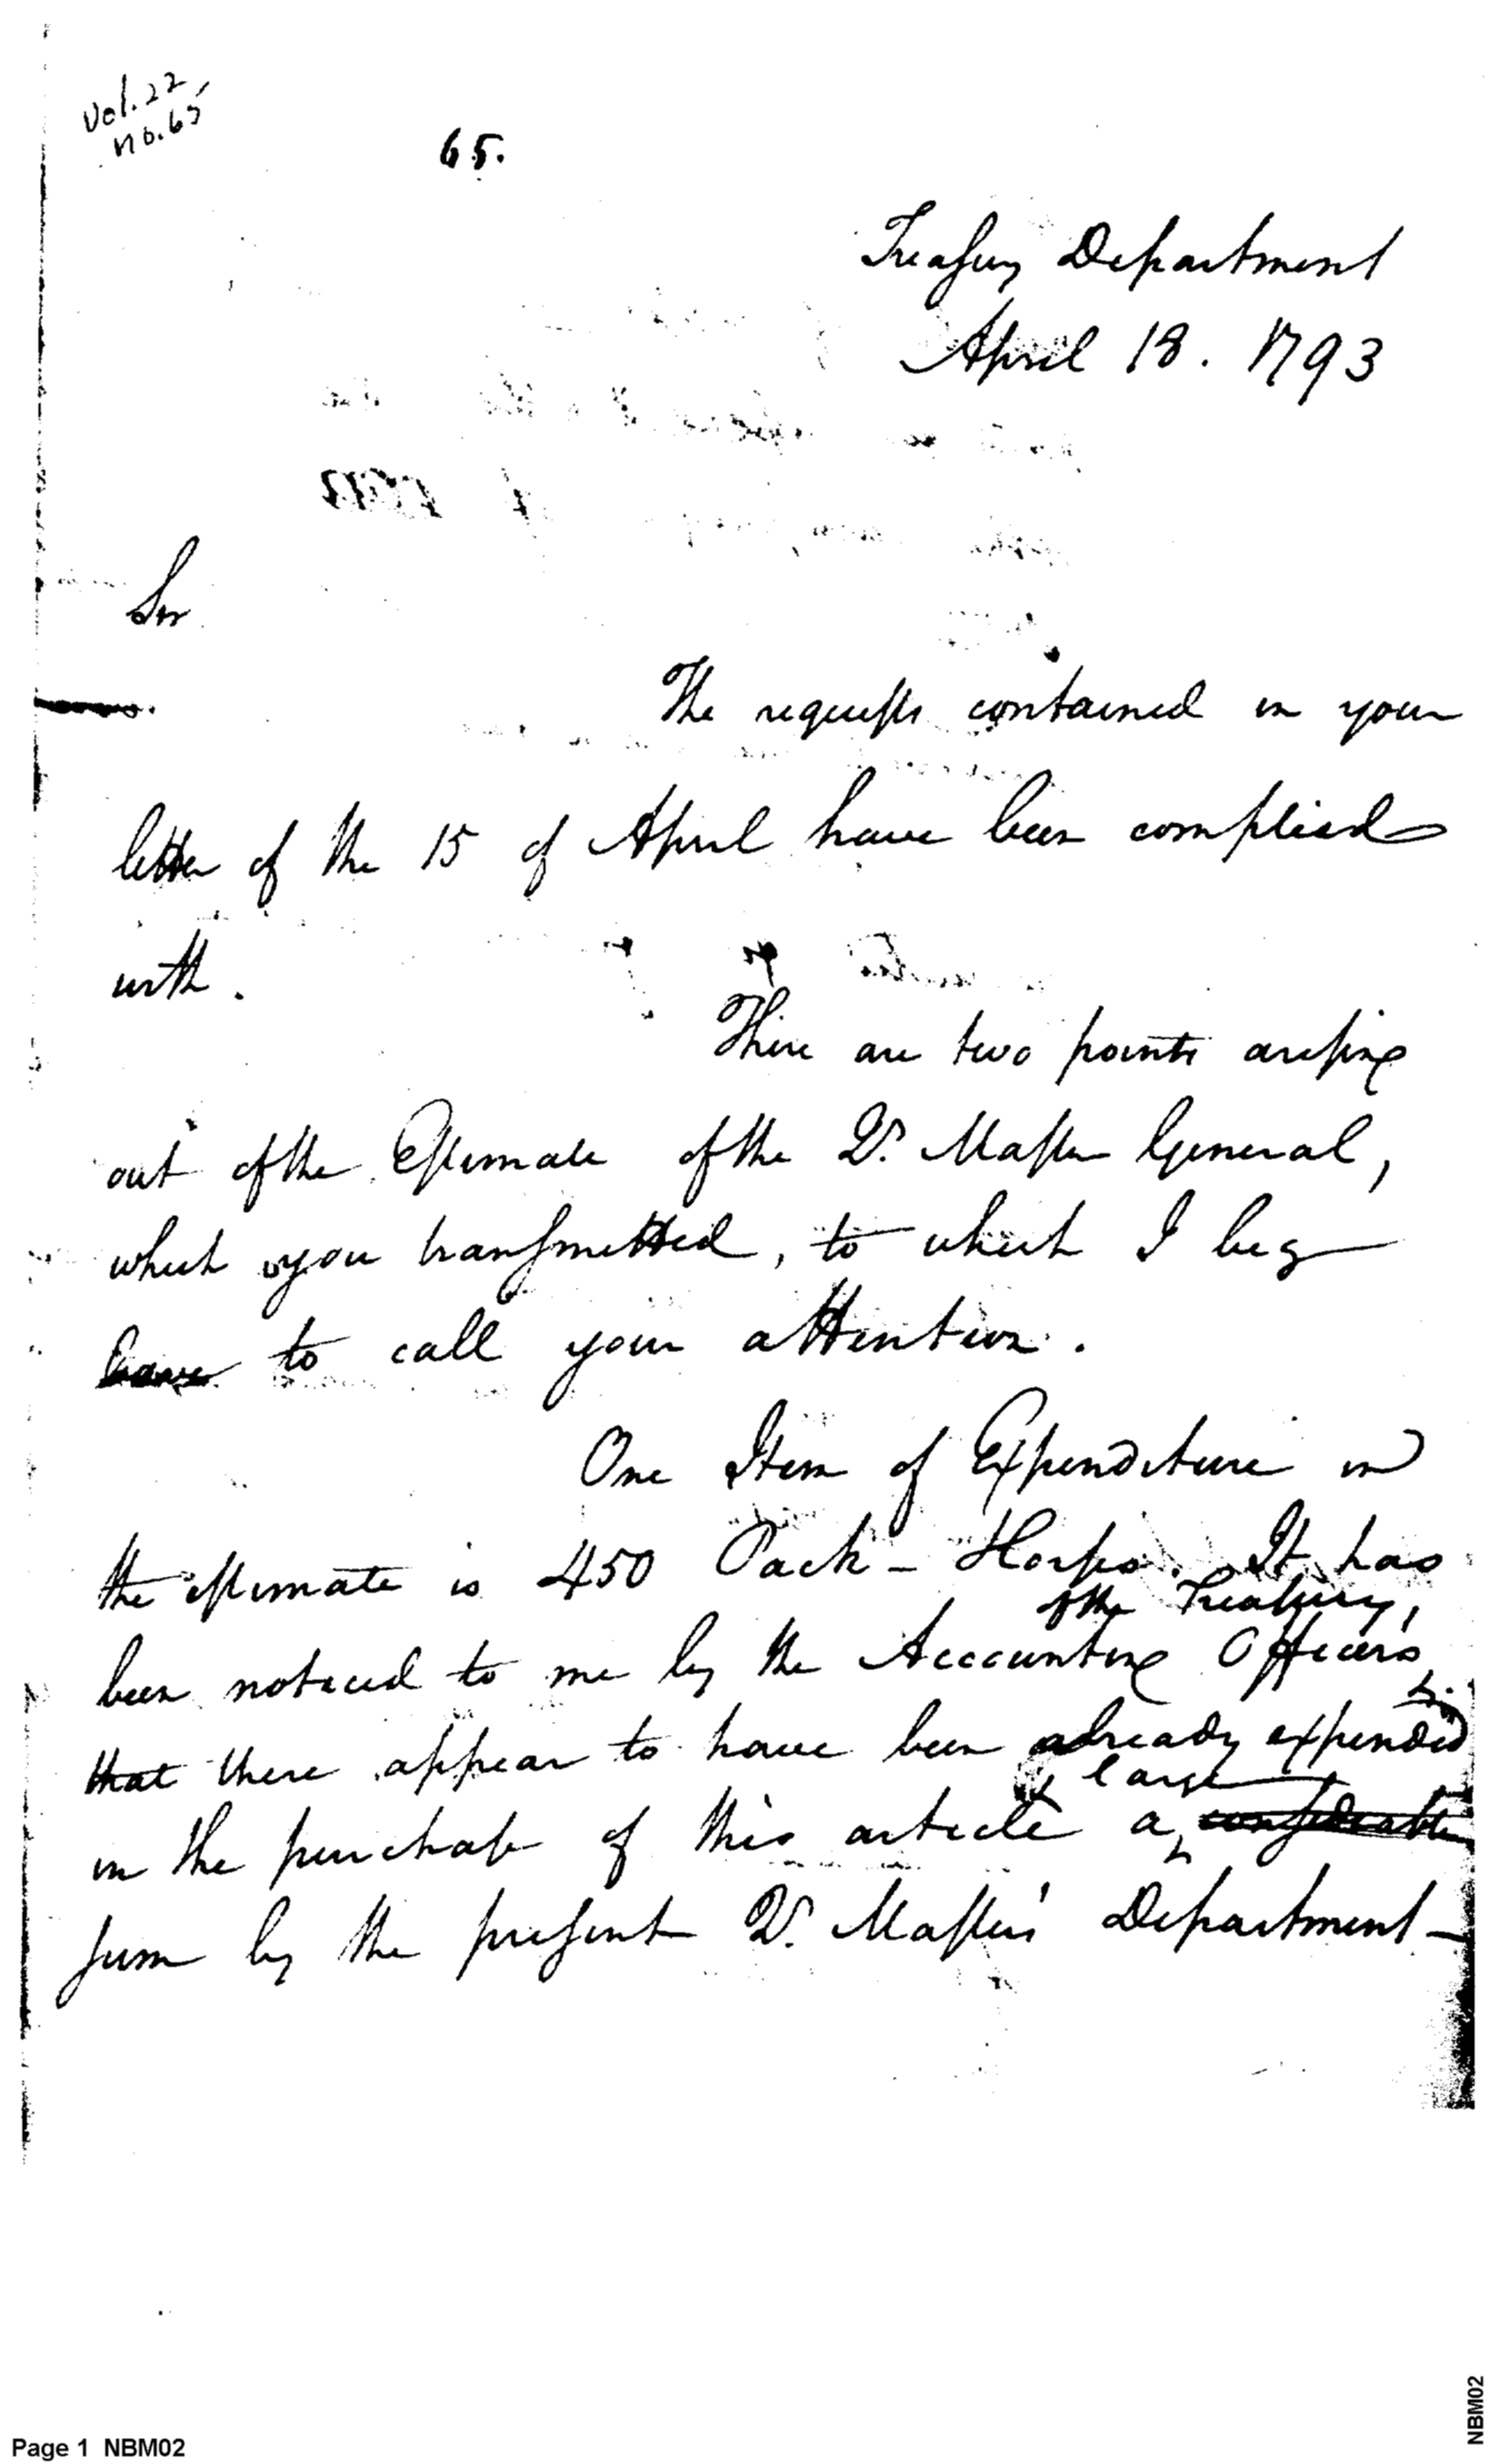 Vol. 22
no. 65
65.
Treasury Department
April 18. 1793
Sir
The requests contained in your
letter of the 15 of April have been complied
with.
There are two points arising
out of the Estimate of the Qr. Master General,
which you transmitted, to which I beg
leave to call your attention.
One Item of Expenditure in
the estimate is 450 Pack-Horses. It has
of the Treasury,
been noticed to me by the Accounting Officers
that there appear to have been already expended
large
in the purchase of this article a considerable
sum by the present Qr. Masters Department—
Page 1 NBM02
NBM02